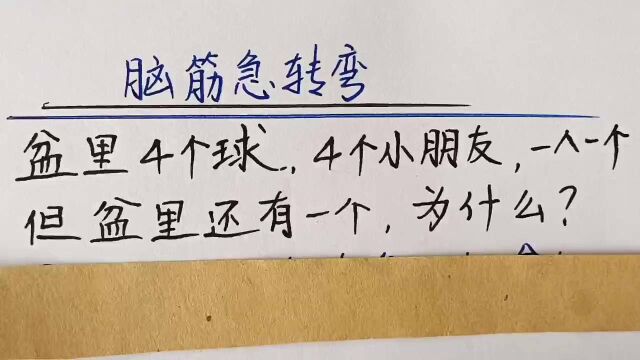 脑筋急转弯
盆里4个球,4个小朋友,一人一个
但盆里还有一个,为什么?